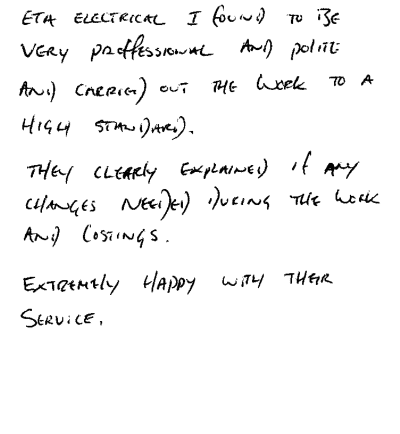 ETA ELECTRICAL I found TO BE
VERY proffESSIONAL AND polite
AND CARRIED OUT THE WORK TO A
HIGH STANDARD.
THEY CLEARLY EXPLAINED if ANY
CHANGES NEEDED DURING THE WORK
AND COSTINGS.
EXTREMELY HAPPY WITH THEIR
SERVICE.